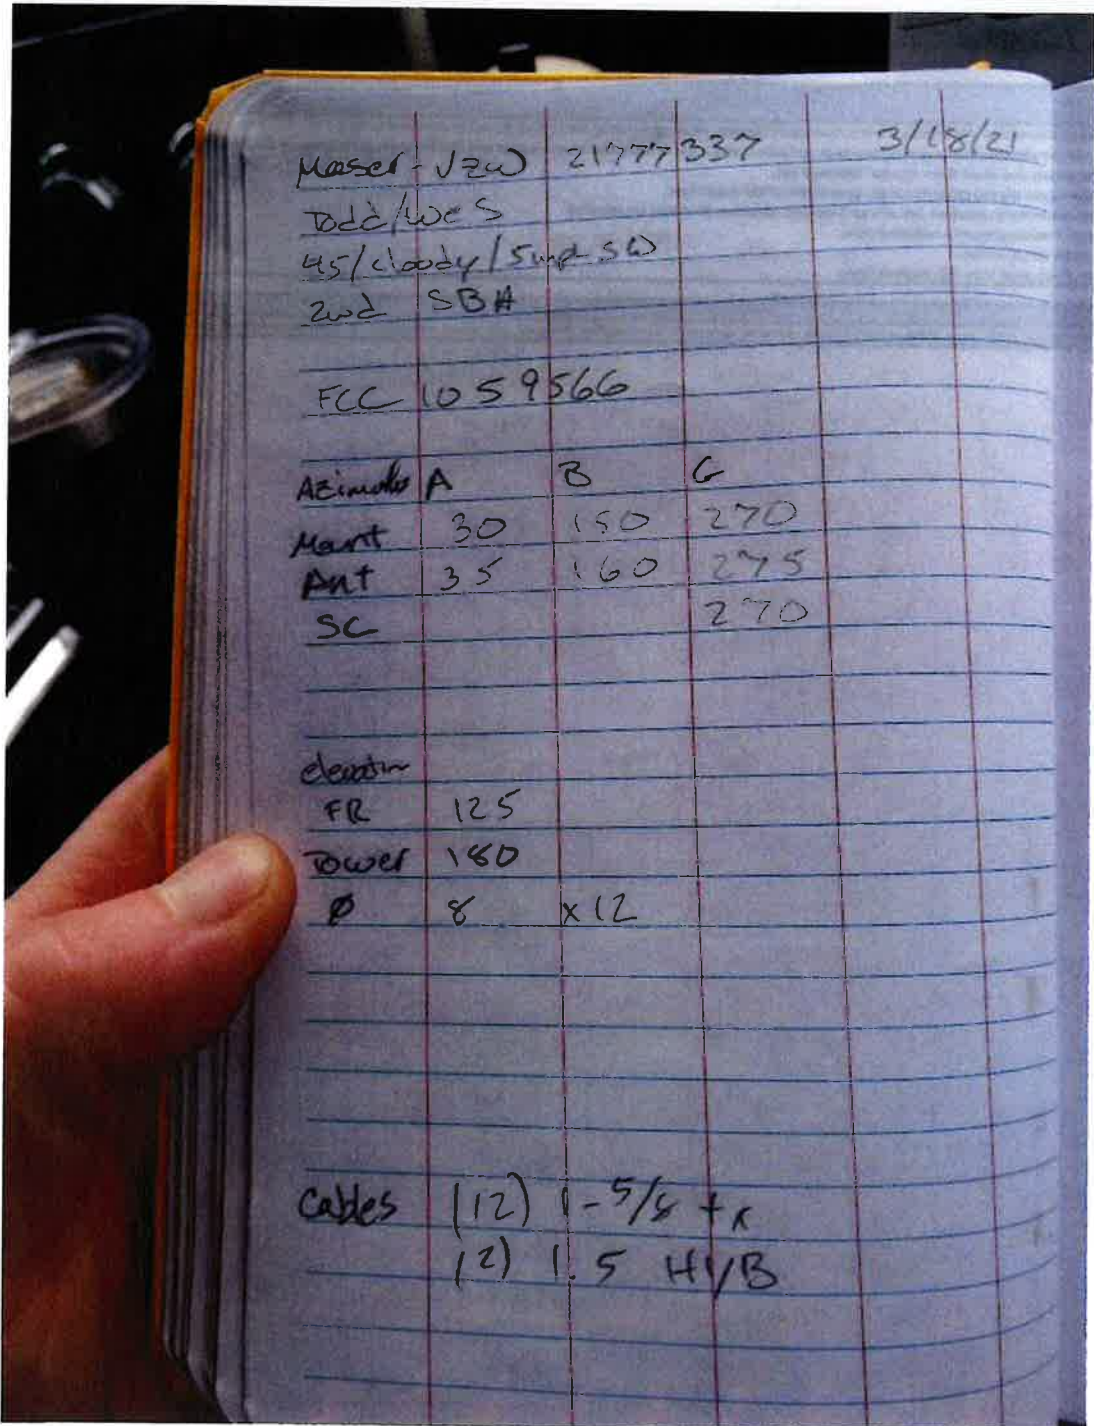 Maser-VZW 21777337 3/18/21
Todd/Wes
45/cloudy/5mph SW
2nd SBA
FCC 1059566
Azimuths A B G
Mant 30 150 270
Ant 35 160 275
SC 270
elevation
FR 125
Tower 180
Ø 8 x12
Cables (12) 1-5/8 tx
(2) 1.5 HYB